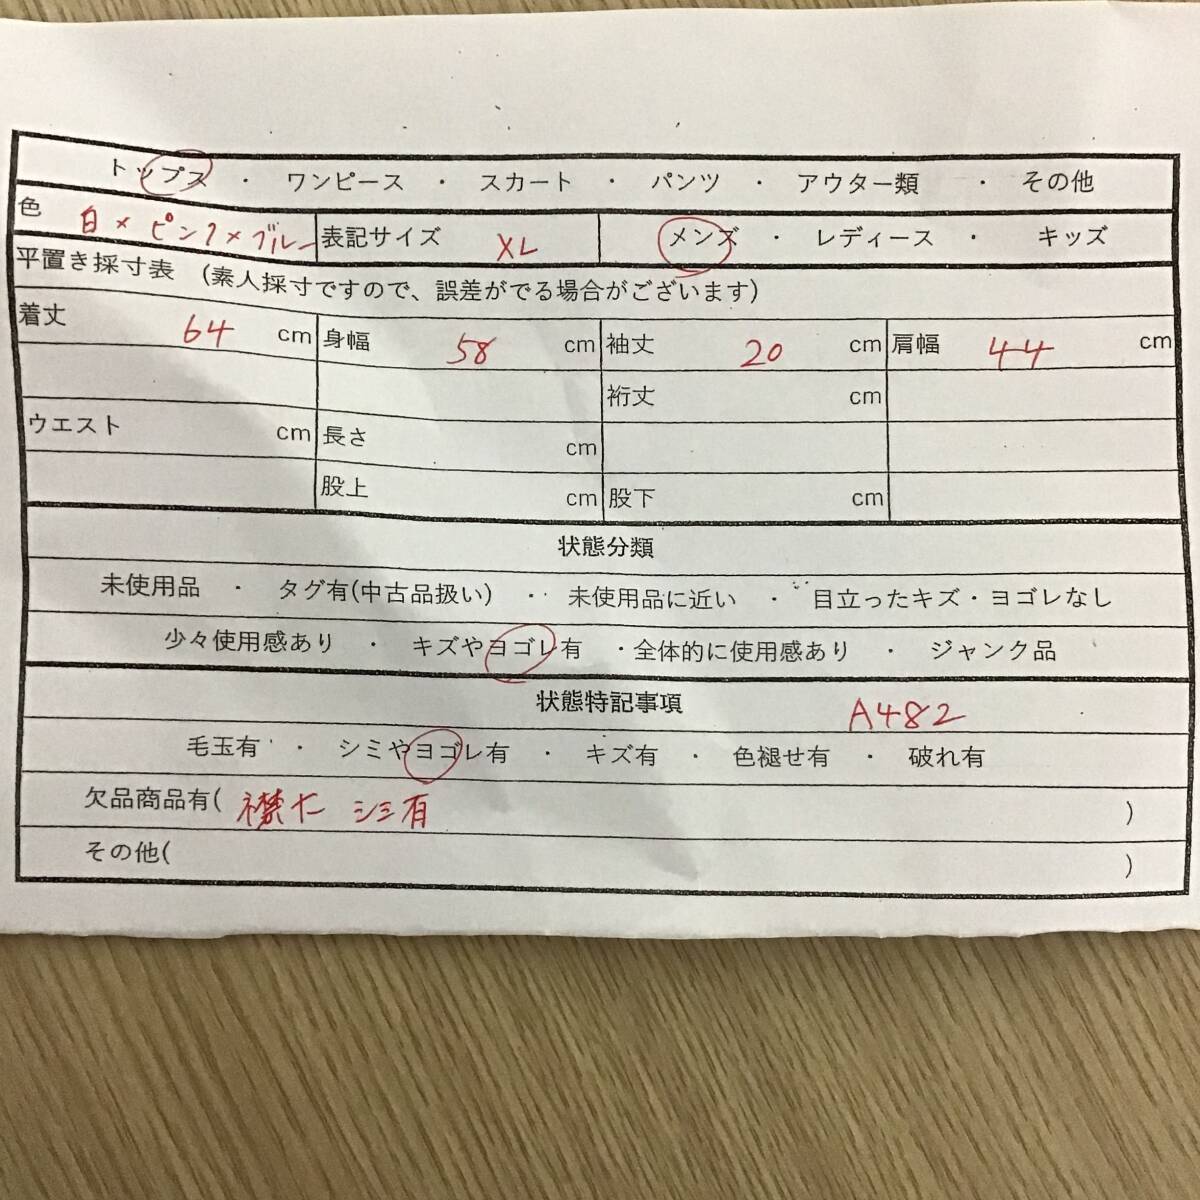 トップス ・ ワンピース ・ スカート ・ パンツ ・ アウター類 ・ その他
色 白×ピンク×ブルー 表記サイズ XL メンズ ・ レディース ・ キッズ
平置き採寸表 (素人採寸ですので、誤差がでる場合がございます)
着丈 64 cm 身幅 58 cm 袖丈 20 cm 肩幅 44 cm
裄丈 cm
ウエスト cm 長さ cm
股上 cm 股下 cm
状態分類
未使用品 ・ タグ有(中古品扱い) ・ 未使用品に近い ・ 目立ったキズ・ヨゴレなし
少々使用感あり ・ キズやヨゴレ有 ・全体的に使用感あり ・ ジャンク品
状態特記事項 A482
毛玉有 ・ シミやヨゴレ有 ・ キズ有 ・ 色褪せ有 ・ 破れ有
欠品商品有( 襟 シミ有 )
その他( )